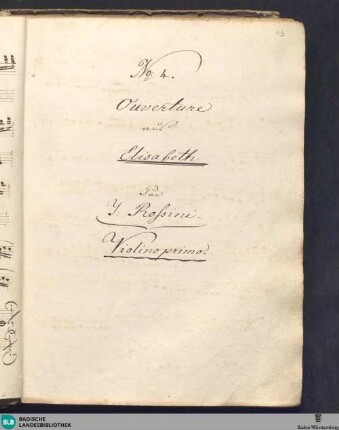 No: 4.
Ouverture
aus
Elisabeth
J. Roſsini.
Violino primo.
BLB
BADISCHE
LANDESBIBLIOTHEK
Baden-Württemberg